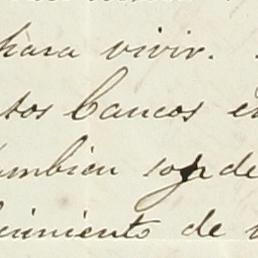 para vivir.
tos bancos e
ambien
imiento de